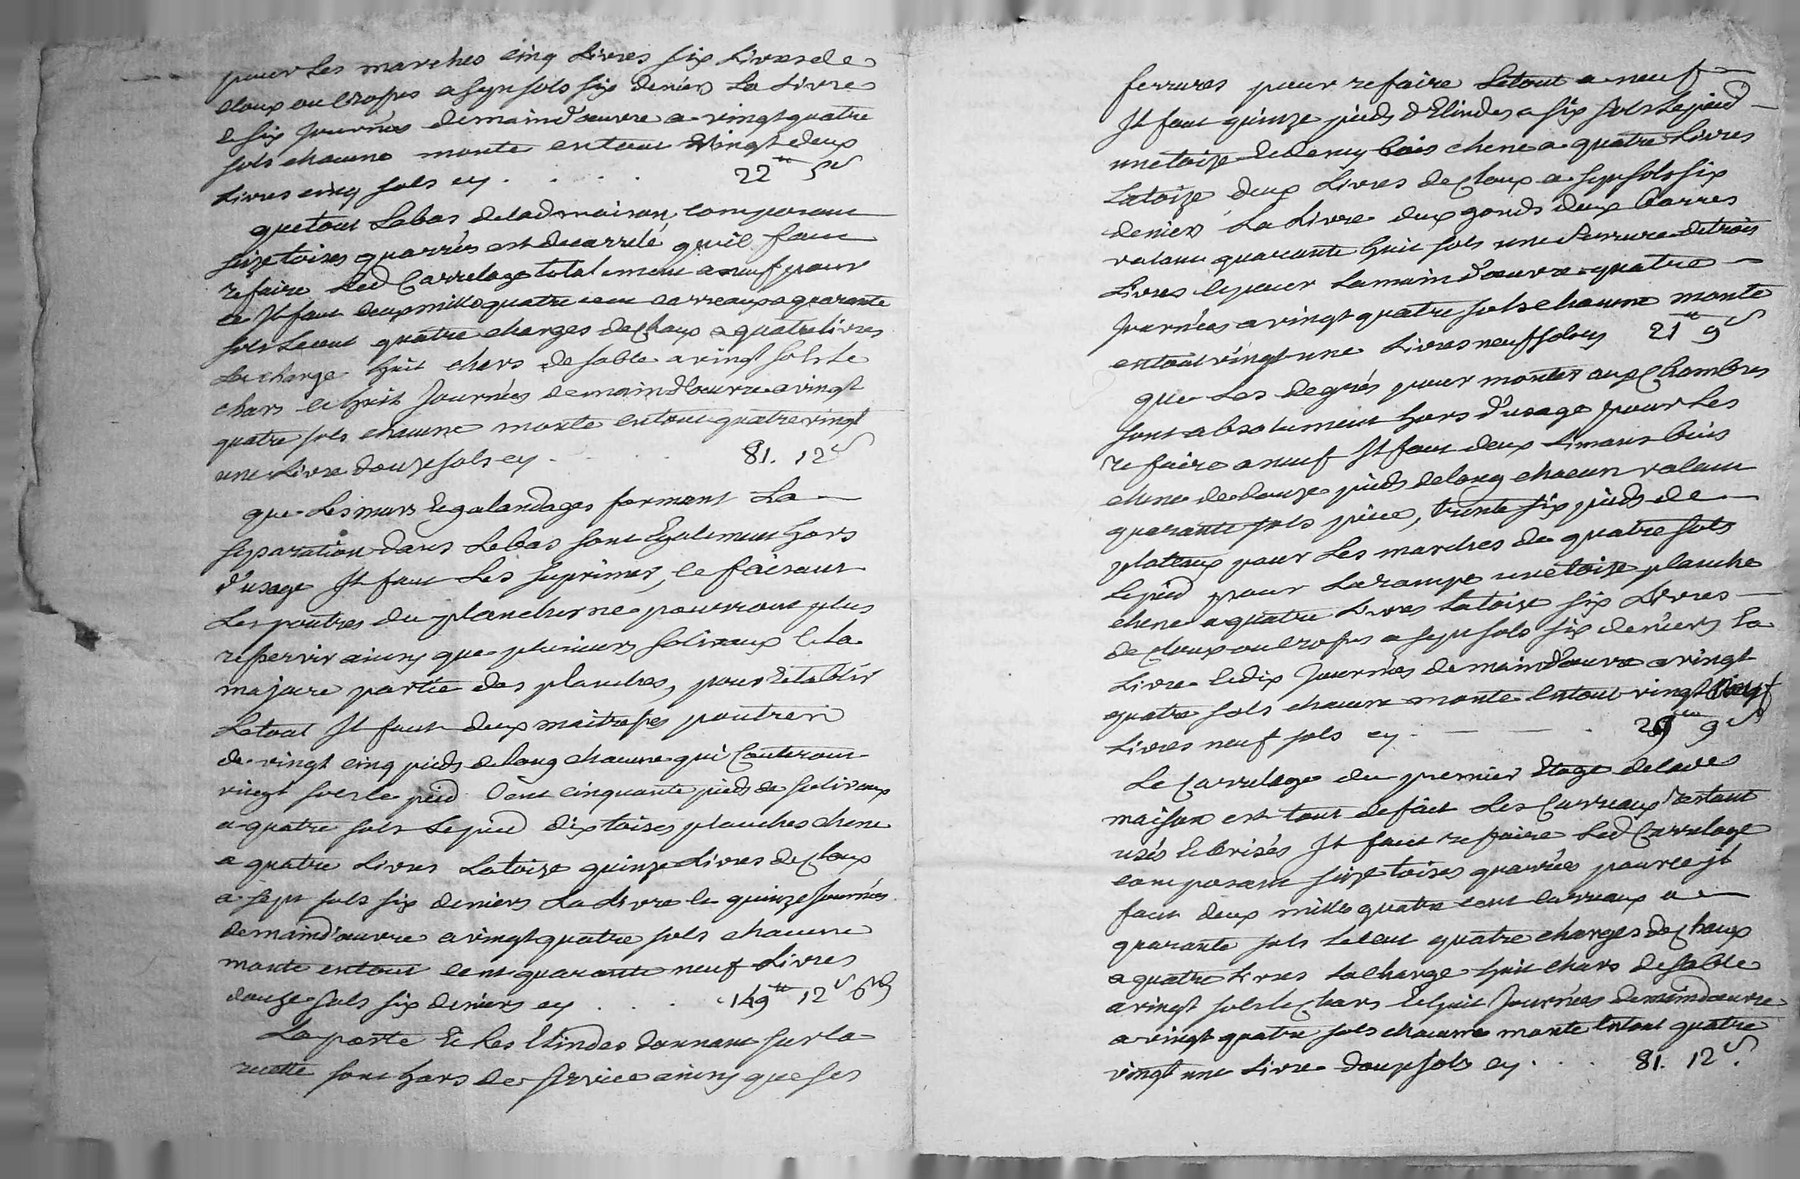 pour les marches cinq Livres six Livres de
cloux ou Crosses a sept sols six deniers La Livre
& six Journées demaind'œuvre a vingt quatre
sols chacune monte en tout Vingt deux
Livres cinq sols cy . . . . 22ᵗᵗ 5ˢ
que tout Le bas delad maison composant
seize toises quarrées est decarrelé qu'il faut
refaire Led Carrelage totalement a neuf pour
ce Jt faut deux mille quatre cent carreaux a quarante
sols Le cent quatre charges de chaux a quatre livres
La charge huit chars de sable a vingt sols le
chars et huit Journées demaind'œuvre a vingt
quatre sols chacune monte en tout quatre vingt
une Livre douze sols cy . . . 81. 12ˢ
que Les murs & galandages formant La
separation dans Le bas sont Egalement hors
d'usage Jt faut Les suprimer, le faisant
Les poutres du plancher ne pourront plus
reservir ainsy que plusieurs soliveaux & la
majeure partie des planches, pour Retablir
Le tout Jt faut deux maitresses poutres
de vingt cinq pieds de long chacune qui Couteront
vingt sols le pied Cent cinquante pieds de soliveaux
a quatre sols Le pied dix toises planches chene
a quatre Livres La toize quinze Livres de cloux
a sept sols six deniers La Livre & quinze Journées
demaind'œuvre a vingt quatre sols chacune
monte en tout cent quarante neuf Livres
douze sols six deniers cy . . . 149ᵗᵗ 12ˢ 6ᵈ
La porte & les Elindes donnant sur la
ruette sont hors de service ainsy que ses
ferrures pour refaire Le tout a neuf
Jt faut quinze pieds d'Elindes a six sols Le pied
une toize de demy bois chene a quatre Livres
La toize deux Livres de cloux a sept sols six
deniers La Livre deux gonds deux barres
valant quarante huit sols une Serrure de trois
Livres & pour La main d'œuvre quatre
Journées a vingt quatre sols chacune monte
en tout vingt une Livres neuf sols cy 21ᵗᵗ 9ˢ
que Les degrés pour monter aux Chambres
sont absolument hors d'usage pour les
refaire a neuf Jt faut deux Limans bois
chene de douze pieds de long chacun valant
quarante sols piece, trente six pieds de
plateaux pour Les marches de quatre sols
Le pied pour La rampe une toize planche
chene a quatre Livres la toize six Livres
de cloux ou crosses a sept sols six deniers La
Livre & dix Journées demaind'œuvre a vingt
quatre sols chacune monte en tout vingt neuf
Livres neuf sols cy . — — . 29ᵗᵗ 9ˢ
Le Carrelage du premier Etage de lade
maison est tout defait Les Carreaux restant
usés & brisés Jt faut refaire Led Carrelage
composant seize toises quarrées pour ce jt
faut deux mille quatre cent carreaux a
quarante sols Le cent quatre charges de chaux
a quatre Livres La charge huit chars de sable
a vingt sols le chars & huit Journées demaind'œuvre
a vingt quatre sols chacune monte En tout quatre
vingt une Livre douze sols cy . . . 81. 12ˢ.